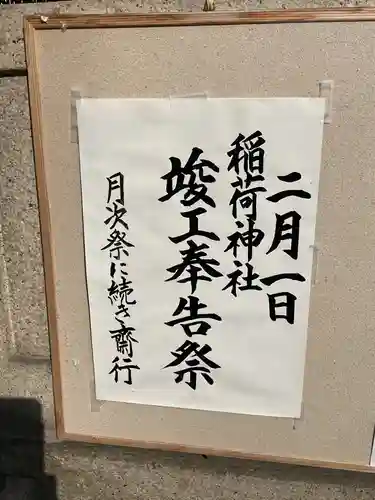 二月一日
稲荷神社
竣工奉告祭
月次祭に続き斎行